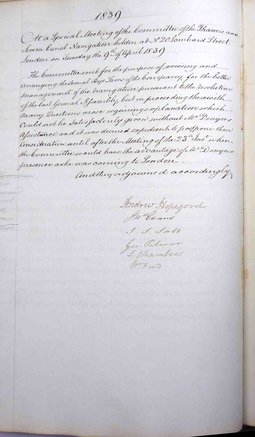 1839
At a Special Meeting of the Committee of the Thames and
Severn Canal Navigation holden at No 20 Lombard Street
London on Tuesday the 9th of April 1839
The Committee met for the purpose of revising and
arranging the several Bye Laws of the Company for the better
management of the Navigation pursuant to the resolution
of the last General Assembly, but in proceeding therewith
many Questions arose requiring explanation which
could not be satisfactorily given without Mr Denyer's
Assistance and it was deemed expedient to postpone their
Consideration until after the Meeting of the 23d Inst when
the Committee would have the advantage of Mr Denyer's
presence as he was coming to London
And they adjourned accordingly
Andrew Hopegood